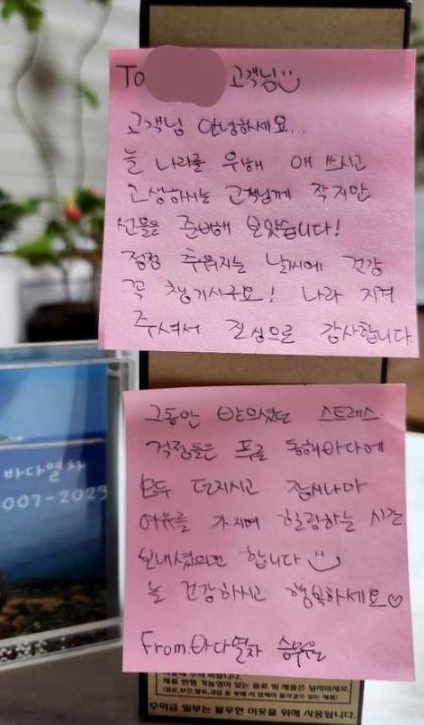 To 고객님
고객님 안녕하세요..
늘 나라를 위해 애 쓰시고
고생하시는 고객님께 작지만
선물을 준비해 보았습니다!
점점 추워지는 날씨에 건강
꼭 챙기시구요! 나라 지켜
주셔서 진심으로 감사합니다
그동안 받으셨던 스트레스.
걱정들은 푸른 동해바다에
모두 던지시고 잠시나마
여유를 가지며 힐링하는 시간
보내셨으면 합니다
늘 건강하시고 행복하세요♡
From.바다열차 승무원
바다열차
007-2023
수익금 일부는 불우한 이웃을 위해 사용됩니다.